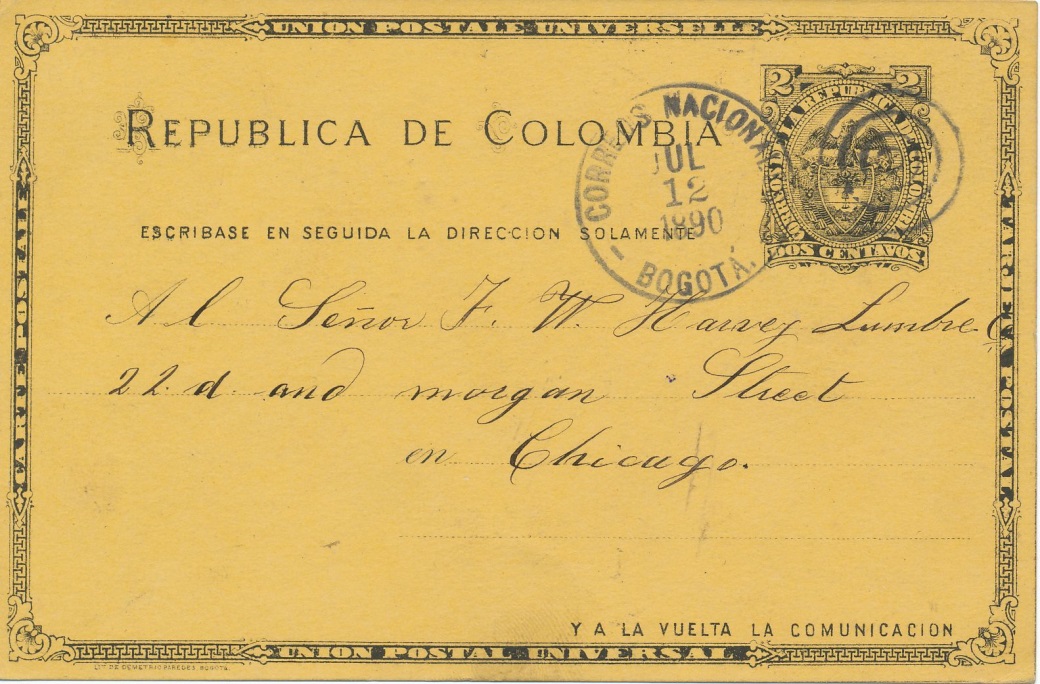 UNION POSTALE UNIVERSELLE
REPUBLICA DE COLOMBIA
CORREOS NACIONA
JUL
12
1890
BOGOTÁ.
2 2
CORREOS DE LA REPUBLICA DE COLOMBIA
DOS CENTAVOS
ESCRIBASE EN SEGUIDA LA DIRECCION SOLAMENTE
Al Señor F. W. Harvey Lumbre C
22.d and morgan Street
en Chicago.
Y A LA VUELTA LA COMUNICACION
CARTE POSTALE
TARJETA POSTAL
UNION POSTAL UNIVERSAL
LIT. DE DEMETRIO PAREDES. BOGOTÁ.